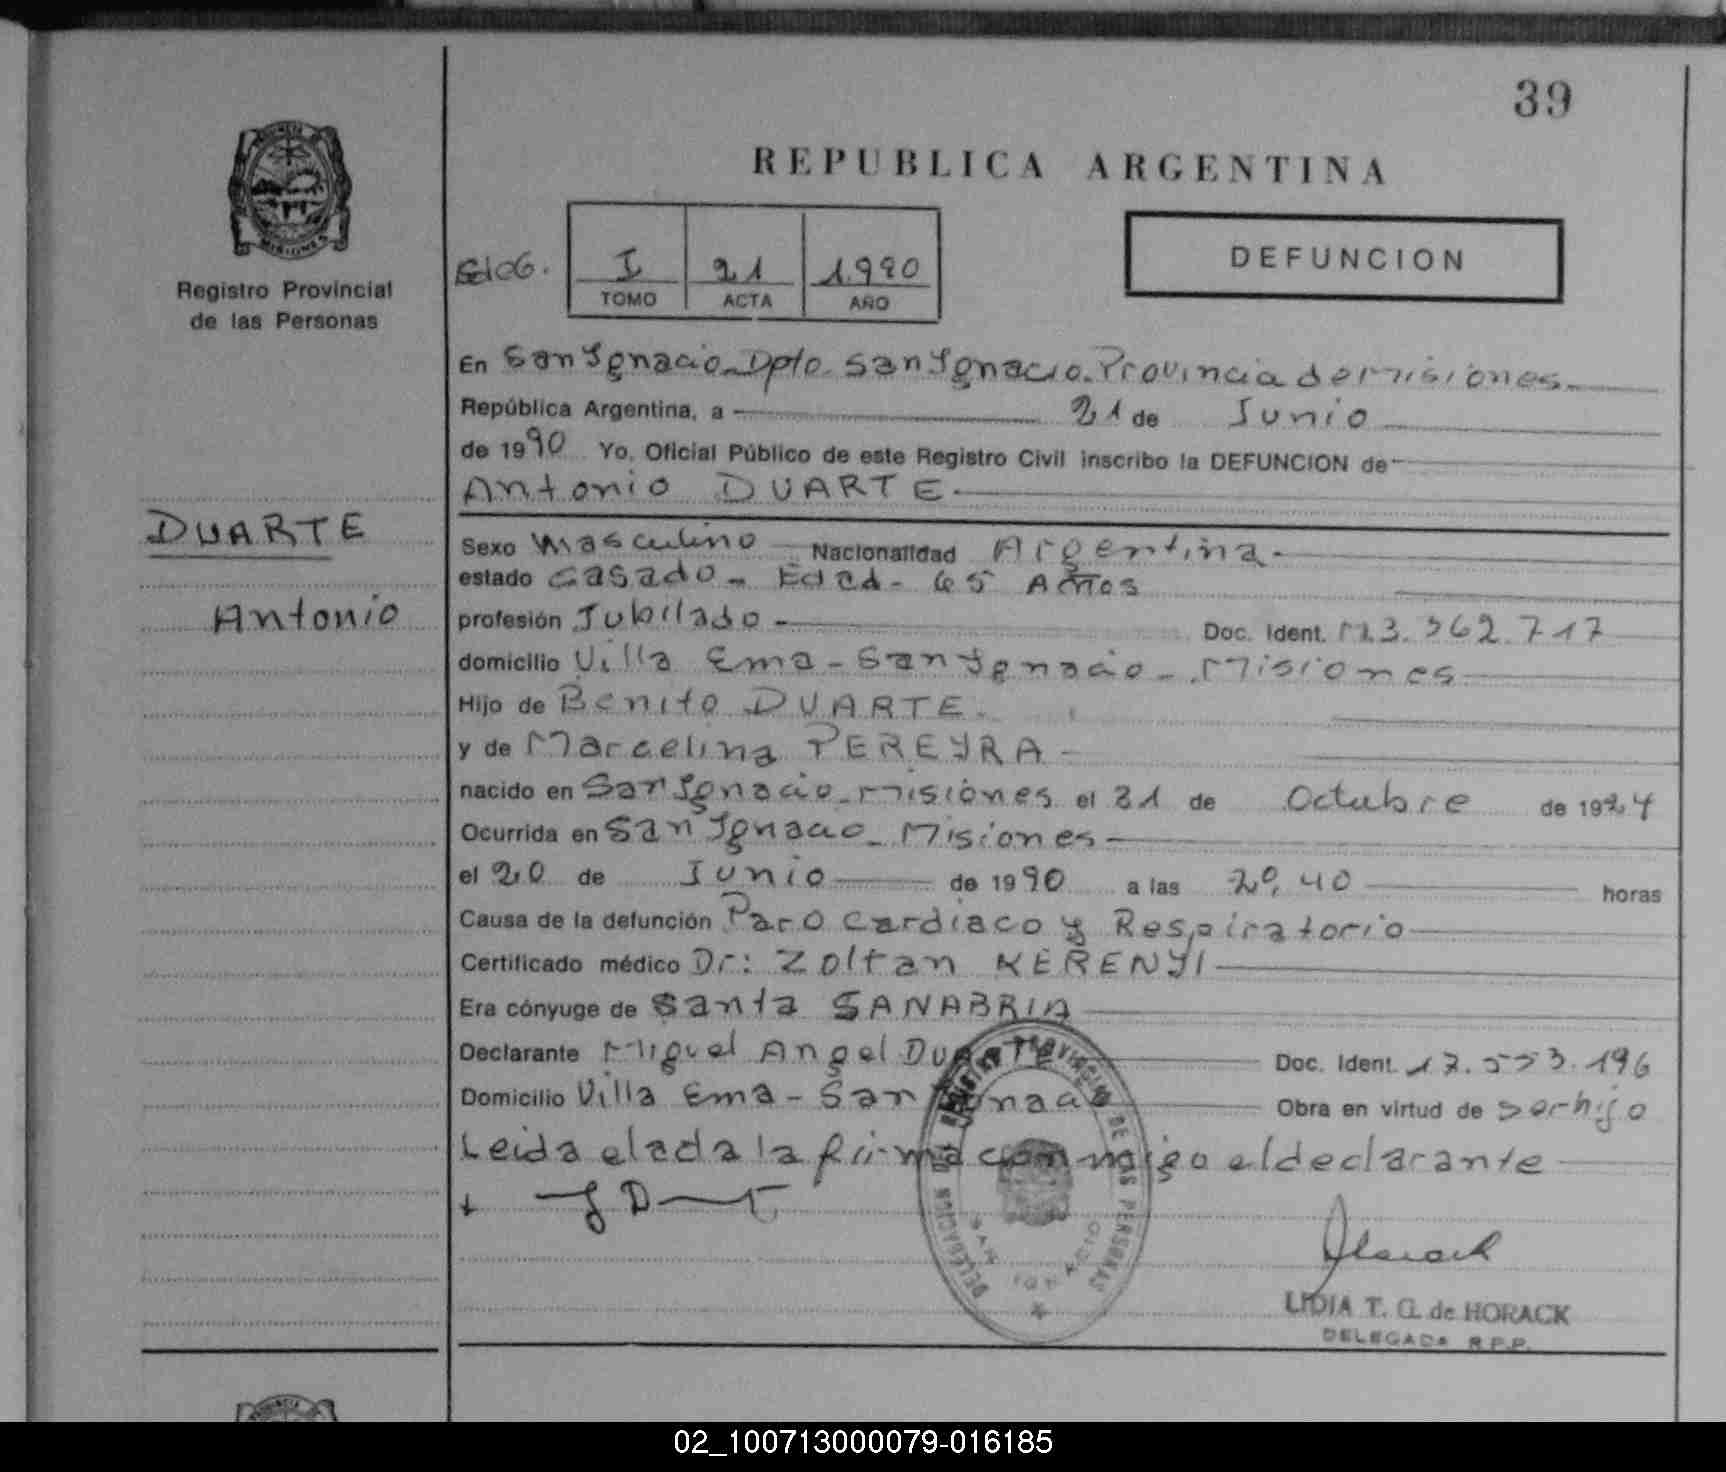 39
REPUBLICA ARGENTINA
I 21 1.990
TOMO ACTA AÑO
DEFUNCION
MISIONES
Registro Provincial
de las Personas
DUARTE
Antonio
En San Ignacio_Dpto. San Ignacio_Provincia de Misiones
República Argentina, a 21 de Junio
de 1990 Yo, Oficial Público de este Registro Civil inscribo la DEFUNCION de
Antonio DUARTE
Sexo Masculino Nacionalidad Argentina
estado Casado - Edad - 65 Años
profesión Jubilado - Doc. Ident. M 3.362.717
domicilio Villa Ema - San Ignacio - Misiones
Hijo de Benito DUARTE.
y de Marcelina PEREYRA
nacido en San Ignacio_Misiones el 31 de Octubre de 1924
Ocurrida en San Ignacio_Misiones
el 20 de Junio de 1990 a las 20,40 horas
Causa de la defunción Paro cardiaco y Respiratorio
Certificado médico Dr: Zoltan KERENYI
Era cónyuge de Santa SANABRIA
Declarante Miguel Angel DUARTE Doc. Ident. 17.553.196
Domicilio Villa Ema - San Ignacio Obra en virtud de ser hijo
Leida el acta la firma conmigo el declarante
DELEGACION REGISTRO PROVINCIAL DE LAS PERSONAS
SAN IGNACIO
LIDIA T. G. de HORACK
DELEGADA R.P.P.
02_100713000079-016185